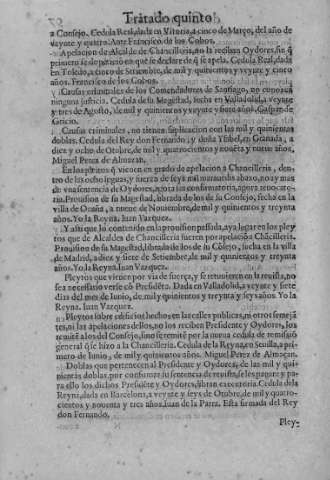 Tratado quinto
a Consejo. Cedula Real, dada en Vitoria, a cinco de Março, del año de
veynte y quatro. Ante Francisco de los Cobos.
Apelacion de Alcalde de Chancilleria, no la reciban Oydores, sin que
primero se de peticion en que se declare de que se apela. Cedula Real, dada
en Toledo, a cinco de Setiembre, de mil y quinientos y veynte y cinco
años. Francisco de los Cobos.
Causas criminales de los Comendadores de Santiago, no conozca
ninguna justicia. Cedula de su Magestad, hecha en Valladolid, a veynte
y tres de Agosto, de mil y quinientos y veynte y siete años. Gaspar de
Gricio.
Causas criminales, no tienen suplicacion con las mil y quinientas
doblas. Cedula del Rey don Fernando, y doña Ysabel, en Granada, a
diez y ocho de Otubre, de mil y quatrocientos y nouenta y nueue años.
Miguel Perez de Almaçan.
En los pleytos que vienen en grado de apelacion a Chancilleria, den-
tro de las ocho leguas, y fuera de seys mil marauedis abaxo, no ay mas
de vna sentencia de Oydores, agora sea confirmatoria, agora reuoca-
toria. Prouision de su Magestad, librada de los de su Consejo, fecha en la
villa de Ocaña, a nueue de Nouiembre, de mil y quinientos y treynta
años. Yo la Reyna. Iuan Vazquez.
Y assi que lo contenido en la prouision passada, aya lugar en los pley
tos que de Alcaldes de Chancilleria fueren por apelacion a Chancilleria.
Prouision de su Magestad, librada de los de su Cosejo, fecha en la villa
de Madrid, a diez y siete de Setiembre, de mil y quinientos y treynta
años. Yo la Reyna. Iuan Vazquez.
Pleytos que vienen por via de fuerça, y se retuuieren en la reuista, no
sea necessario verse con Presidente. Dada en Valladolid, a veynte y siete
dias del mes de Iunio, de mil y quinientos y treynta y seys años. Yo la
Reyna. Iuan Vazquez.
Pleytos sobre edificios hechos en las calles publicas, ni otros semeja
tes, ni las apelaciones dellos, no los reciben Presidente y Oydores, los
remita a los del Consejo, sino se remite por la nueua cedula de remissió
general que se hizo a la Chancilleria. Cedula de la Reyna, en Seuilla, a pri-
mero de Iunio, de mil y quinientos años. Miguel Perez de Almaçan.
Doblas que pertenecen al Presidente y Oydores, de las mil y qui-
nientas doblas, por confirmar su sentencia de reuista, se les pague y pa-
ra ello los dichos Presidente y Oydores, libran executoria. Cedula dela
Reyna, dada en Barcelona, a veynte y seys de Otubre, de mil y quatro-
cientos y nouenta y tres años. Iuan de la Parra. Esta firmada del Rey
don Fernando.
Pley-